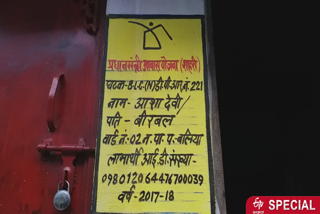 प्रधानमंत्री आवास योजना (शहरी)
घटक-B.L.C.(N)डी.पी.आर.नं.221
नाम- आशा देवी/
पति- बीरबल
वार्ड नं.-02 न.पा.प.-बलिया
लाभार्थी आई.डी.संख्या-
09801206447670003​9
वर्ष- 2017-18
SPECIAL